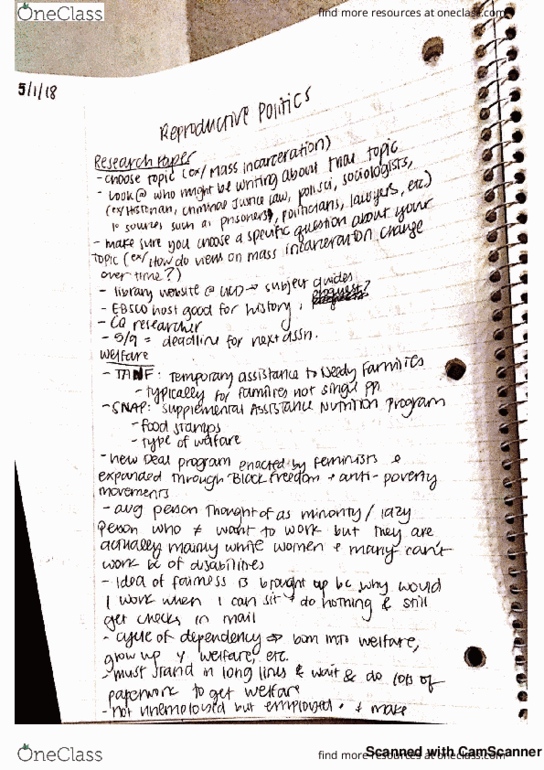 OneClass
find more resources at oneclass.com
5/1/18
Reproductive Politics
Research Paper
- choose topic (ex/ mass incarceration)
- Look @ who might be writing about that topic
(ex/ Historian, criminal Justice law, polisci, sociologists,
sources such as prisoners, politicians, lawyers, etc.)
- make sure you choose a specific question about your
topic (ex/ How do views on mass incarceration change
over time?)
- library website @ UCD → subject guides
- EBSCO host good for history,
- CQ researcher
- 5/9 = deadline for next assn.
Welfare
- TANF: Temporary assistance to Needy Families
- typically for families not single ppl
- SNAP: Supplemental Assistance Nutrition Program
- food stamps
- type of welfare
- new Deal program enacted by feminists &
expanded through Black Freedom + anti-poverty
movements
- avg person thought of as minority / lazy
person who ≠ want to work but they are
actually mainly white women + many can't
work bc of disabilities
- Idea of fairness is brought up bc why would
I work when I can sit + do nothing & still
get checks in mail
- cycle of dependency ⇒ born into welfare,
grow up welfare, etc.
- must stand in long lines & wait & do lots of
paperwork to get welfare
- not unemployed but employed + make
OneClass
find more resources at oneclass.com
Scanned with CamScanner